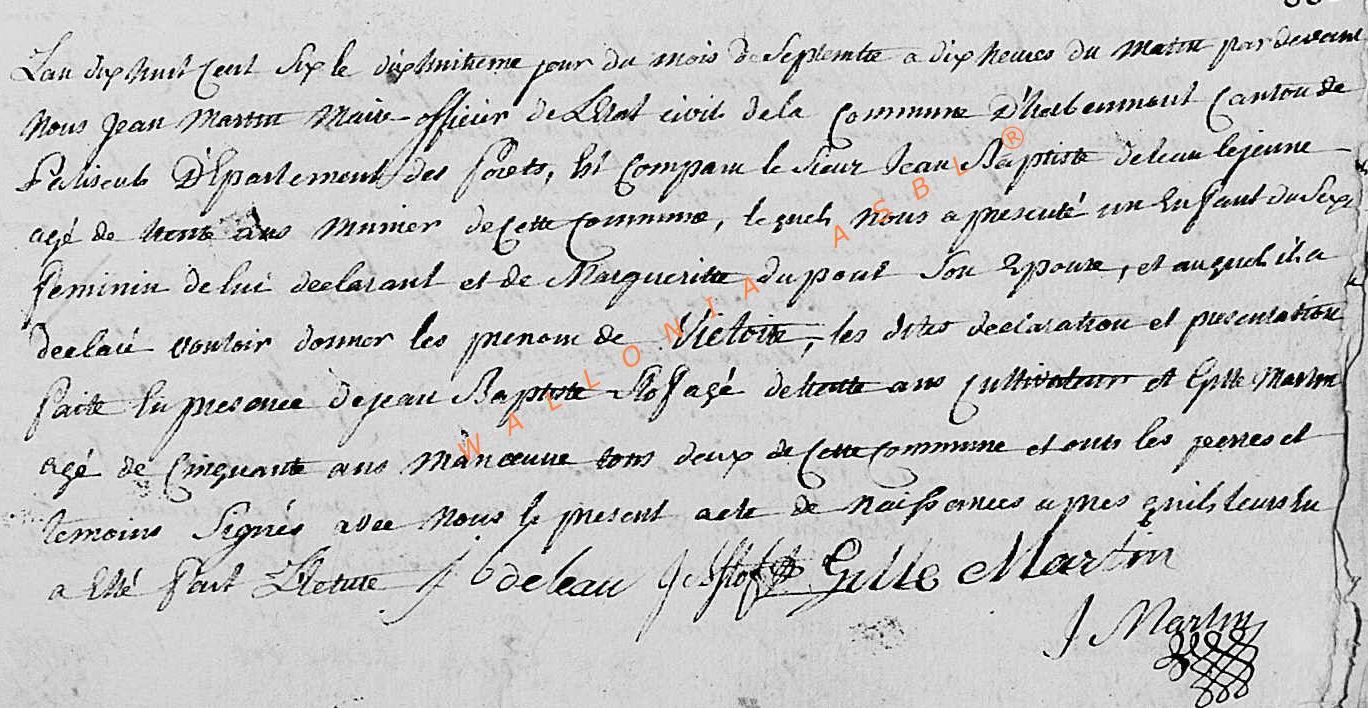 L'an dix huit Cent Six le dix huitieme jour du mois de Septembre a dix heures du Matin par devant
Nous Jean Martin Maire officier de L'Etat civil de la Commune D'herbeumont Canton de
Paliseul D'Epartement des forêts, Est Comparu le Sieur Jean Baptiste deleau lejeune
agé de trente ans Munier de Cette Commune, lequel Nous a presenté un Enfant du Sexe
feminin de lui declarant et de Margueritte dupont Son Epouse, et auquel il a
declaré vouloir donner les prenom de Victoire, les dites declaration et presentation
faite En presence de jean Baptiste agé de trente ans Cultivateur et Gille Martin
agé de Cinquante ans Manœuvre tous deux de Cette Commune et onts les peres et
temoins Signés avec Nous le present acte de Naissances apres quils leurs En
a Eté fait Lecture J b deleau Gille Martin
J Martin
WALLONIA ASBL ®